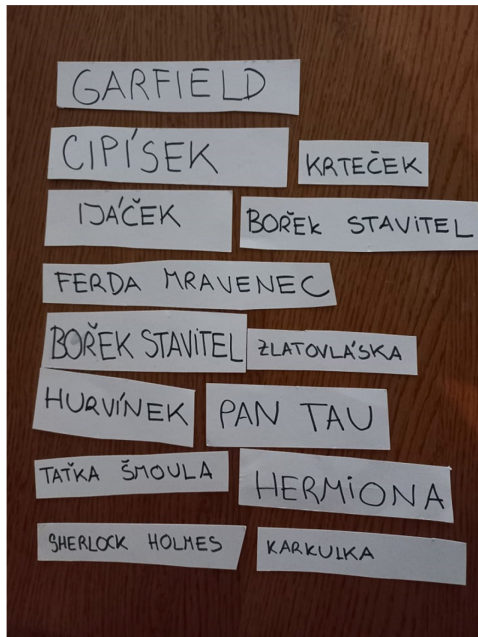 GARFIELD
CIPÍSEK
KRTEČEK
IJÁČEK
BOŘEK STAVITEL
FERDA MRAVENEC
BOŘEK STAVITEL
ZLATOVLÁSKA
HURVÍNEK
PAN TAU
TAŤKA ŠMOULA
HERMIONA
SHERLOCK HOLMES
KARKULKA